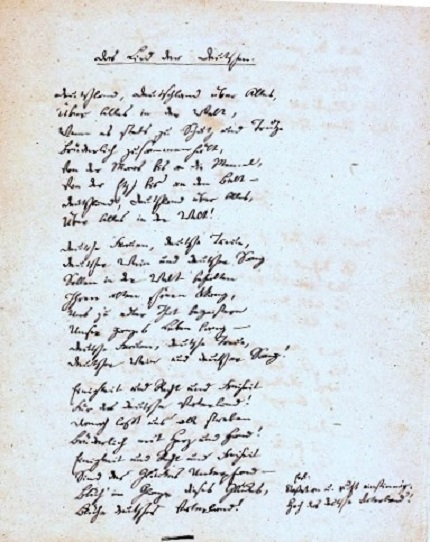 Das Lied der Deutschen.
Deutschland, Deutschland über Alles,
Über Alles in der Welt,
Wenn es stets zu Schutz und Trutze
Brüderlich zusammenhält,
Von der Maas bis an die Memel,
Von der Etsch bis an den Belt –
Deutschland, Deutschland über Alles,
Über Alles in der Welt!
Deutsche Frauen, deutsche Treue,
Deutscher Wein und deutscher Sang
Sollen in der Welt behalten
Ihren alten schönen Klang,
Uns zu edler That begeistern
Unser ganzes Leben lang –
Deutsche Frauen, deutsche Treue,
Deutscher Wein und deutscher Sang!
Einigkeit und Recht und Freiheit
Für das deutsche Vaterland!
Danach laßt uns alle streben
Brüderlich mit Herz und Hand!
Einigkeit und Recht und Freiheit
Sind des Glückes Unterpfand –
Blüh' im Glanze dieses Glückes,
Blühe deutsches Vaterland!
Stoßet an und ruft einstimmig:
Hoch das deutsche Vaterland!